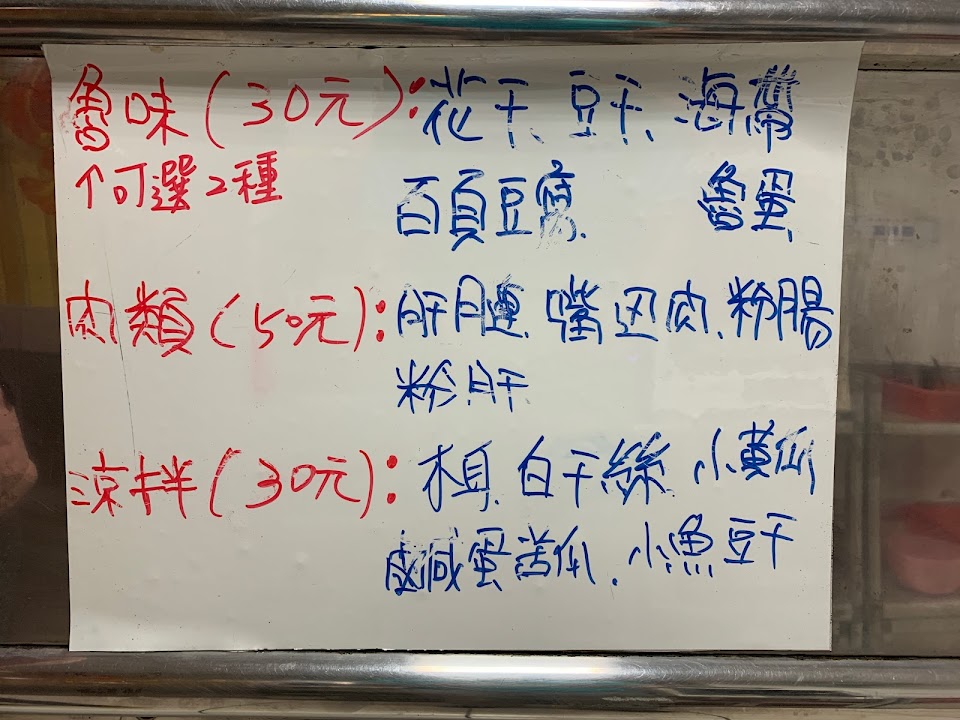 魯味(30元):花干、豆干、海帶
↑可選2種 百頁豆腐、魯蛋
肉類(50元):肝 嘴边肉、粉腸
粉肝
涼拌(30元):木耳、白干絲、小黃瓜
鹹蛋苦瓜、小魚豆干